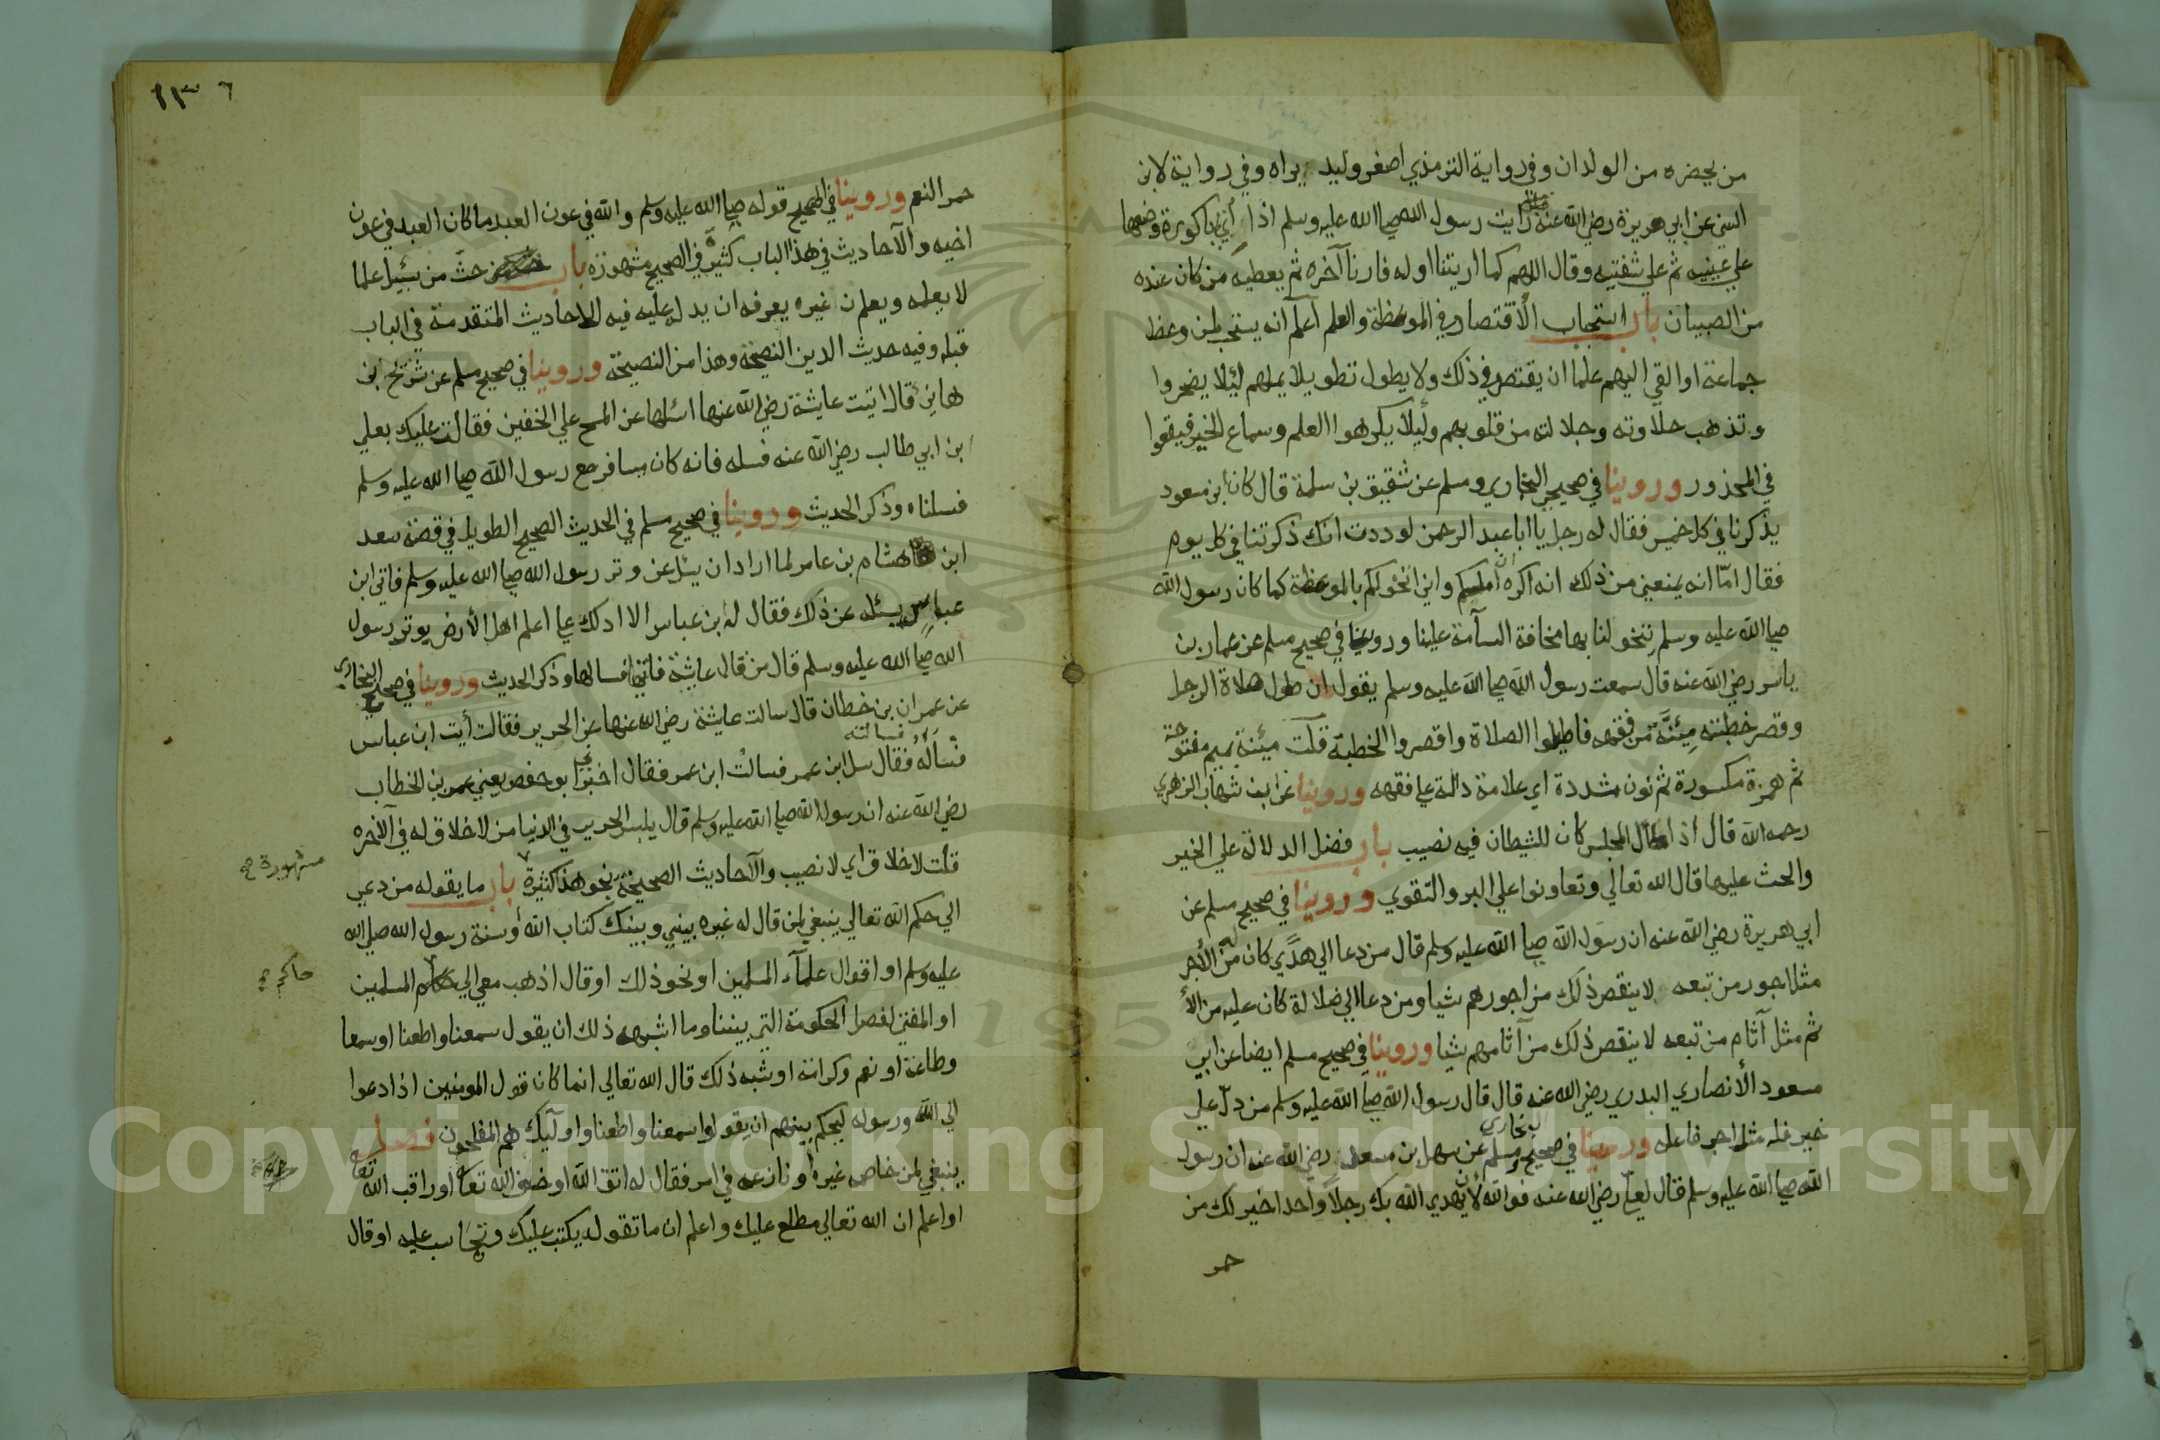 من يحضره من الولدان وفي رواية الترمذي اصغر وليد يراه وفي رواية لابن
السني عن ابي هريرة رضي الله عنه رايت رسول الله صلى الله عليه وسلم اذا أتي بباكورة وضعها
علي عينيه ثم علي شفتيه وقال اللهم كما اريتنا اوله فارنا آخره ثم يعطيه من كان عنده
من الصبيان باب استحباب الأقتصار في الموعظة والعلم أعلم انه يستحب لمن وعظ
جماعة او القي اليهم علما ان يقتصر في ذلك ولا يطول تطويلا يملهم ليئلا يضجروا
وتذهب حلاوته وجلالته من قلوبهم ولئلا يكرهوا العلم وسماع الخير فيقعوا
في المحذور وروينا في صحيحي البخاري ومسلم عن شقيق بن سلمة قال كان ابن مسعود
يذكرنا في كل خميس فقال له رجل يا ابا عبد الرحمن لوددت انك ذكرتنا في كل يوم
فقال امّا انه يمنعني من ذلك انه اكره ان املكم واني اتخولكم بالموعظة كما كان رسول الله
صلى الله عليه وسلم يتخولنا بها مخافة السآمة علينا وروينا في صحيح مسلم عن عمار بن
ياسر رضي الله عنه قال سمعت رسول الله صلى الله عليه وسلم يقول ان طول صلاة الرجل
وقصر خطبته مئنّة من فقهه فاطيلوا الصلاة واقصروا الخطبة قلت مئنة بميم مفتوحة
ثم همزة مكسورة ثم نون مشددة اي علامة دالة على فقهه وروينا عن ابن شهاب الزهري
رحمه الله قال اذا طال المجلس كان للشيطان فيه نصيب باب فضل الدلالة علي الخير
والحث عليها قال الله تعالي وتعاونوا علي البر والتقوي وروينا في صحيح مسلم عن
ابي هريرة رضي الله عنه ان رسول الله صلى الله عليه وسلم قال من دعا الي هدًي كان له من الأجر
مثل اجور من تبعه لا ينقص ذلك من اجورهم شيا ومن دعا الي ضلالة كان عليه من الأ
ثم مثل آثام من تبعه لا ينقص ذلك من آثامهم شيا وروينا في صحيح مسلم ايضا عن ابي
مسعود الأنصاري البدري رضي الله عنه قال قال رسول الله صلى الله عليه وسلم من دلّ علي
خير فله مثل اجر فاعله وروينا في صحيح البخاري ومسلم عن سهل بن سعد رضي الله عنه ان رسول
الله صلى الله عليه وسلم قال لعليّ رضي الله عنه فوالله لأن يهدي الله بك رجلاً واحدا خير لك من
حمر
١٣٦
حمر النعم وروينا في الصحيح قوله صلى الله عليه وسلم والله في عون العبد ما كان العبد في عون
اخيه والآحاديث في هذا الباب كثيرة في الصحيح مشهورة باب حث من سئيل علما
لا يعلمه ويعلم ن غيره يعرفه ان يدله عليه فيه الاحاديث المتقدمة في الباب
قبله وفيه حديث الدين النصيحة وهذا من النصيحة وروينا في صحيح مسلم عن شريح بن
هاني قال اتيت عايشة رضي الله عنها اسئلها عن المسح علي الخفين فقالت عليك بعلي
ابن ابي طالب رضي الله عنه فسله فانه كان يسافر مع رسول الله صلى الله عليه وسلم
فسلناه وذكر الحديث وروينا في صحيح مسلم في الحديث الصحيح الطويل في قصة سعد
ابن هشام بن عامر لما اراد ان يسئل عن وتر رسول الله صلى الله عليه وسلم فاتي ابن
عباس يسئله عن ذلك فقال له ابن عباس الا ادلك على اعلم اهل الأرض بوتر رسول
الله صلى الله عليه وسلم قال من قال عايشة فاتها فسالها وذكر الحديث وروينا في صحيح البخاري
عن عمران بن خطان قال سالت عايشة رضي الله عنها عن الحرير فقالت أيت ابن عباس
فسألْه فسالته فقال سل ابن عمر فسالت ابن عمر فقال اخبرني ابو حفص يعني عمر بن الخطاب
رضي الله عنه ان رسول الله صلى الله عليه وسلم قال يلبس الحرير في الدنيا من لا خلاق له في الآخره
قلت لا خلاق اي لا نصيب والآحاديث الصحيحة بنحو هذا كثيرة باب ما يقوله من دعي
مشهورة صح
الي حكم الله تعالي ينبغي لمن قال له غيره بيني وبينك كتاب الله أو سنة رسول الله صلى الله
عليه وسلم او اقوال علمآء المسلمين او نحو ذلك او قال اذهب معي الي حاكم المسلمين
حاكم صح
او المفتي لفصل الحكومة التي بيننا وما اشبهه ذلك ان يقول سمعنا واطعنا او سمعا
وطاعة او نعم وكرامة او شبه ذلك قال الله تعالي انما كان قول المومنين اذا دعوا
الي الله ورسوله ليحكم بينهم ان يقولوا سمعنا واطعنا واوليك هم المفلحون فصل
ينبغي لمن خاصمه غيره او نازعه في امر فقال له اتق الله او خف الله تعالى او راقب الله تعالى
او اعلم ان الله تعالي مطلع عليك واعلم ان ما تقوله يكتب عليك وتحاسب عليه او قال
Copyright © King Saud University
195